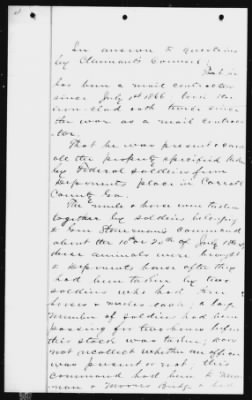 In answer to questions
by Claimants Counsel;
That he
has been a mail contractor
since July 1st 1866. took the
iron-clad oath twice since
the war as a mail contrac
tor.
That he was present & saw
all the property specified taken
by Federal soldiers from
Deponents place in Carroll
County Ga.
The mule & horse were taken
together by soldiers belonging
to Gen Stoneman's Command
about the 10th or 20th of July 1864
these animals were brought
to deponents house after they
had been taken by two
soldiers who had three
horses & mules each; a large
number of soldiers had been
passing for two hours before
this stock was taken; does
not recollect whether an officer
was present or not; this
command had been to New
nan & Moores Bridge & had